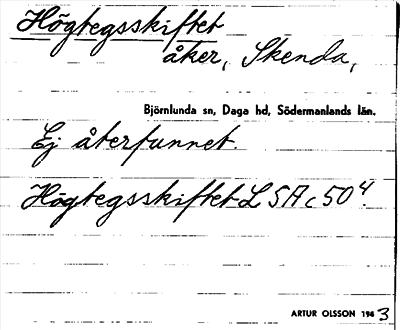 Högtegsskiftet
åker, Skenda,
Björnlunda sn, Daga hd, Södermanlands län.
Ej återfunnet.
Högtegsskiftet L SA c 50⁴.
ARTUR OLSSON 1943